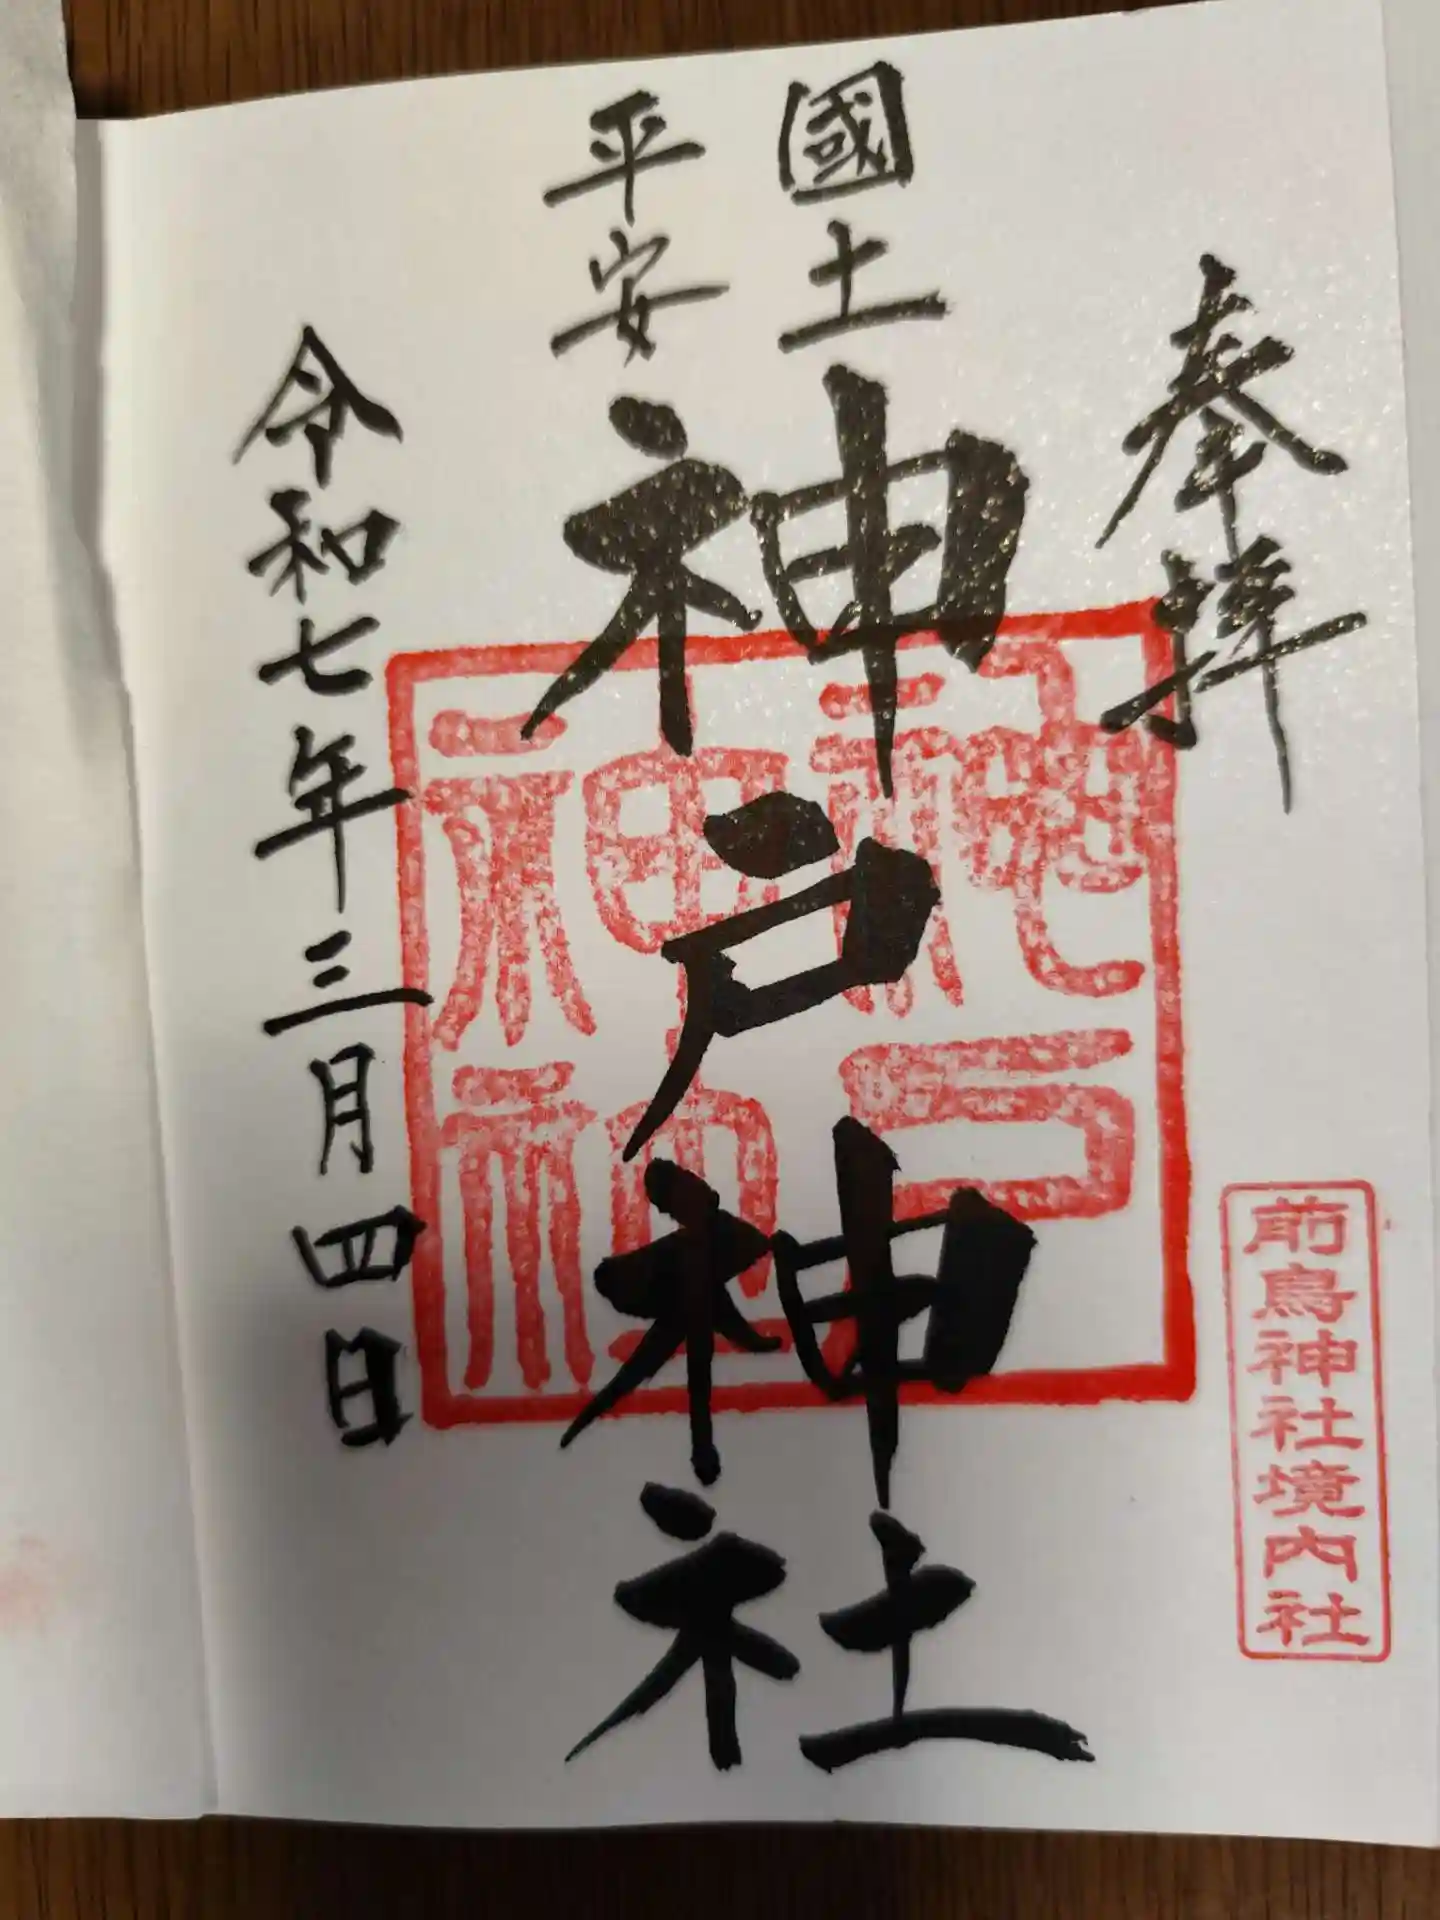 奉拝
前鳥神社境内社
國土
平安
神戸神社
神戸神社
令和七年三月四日